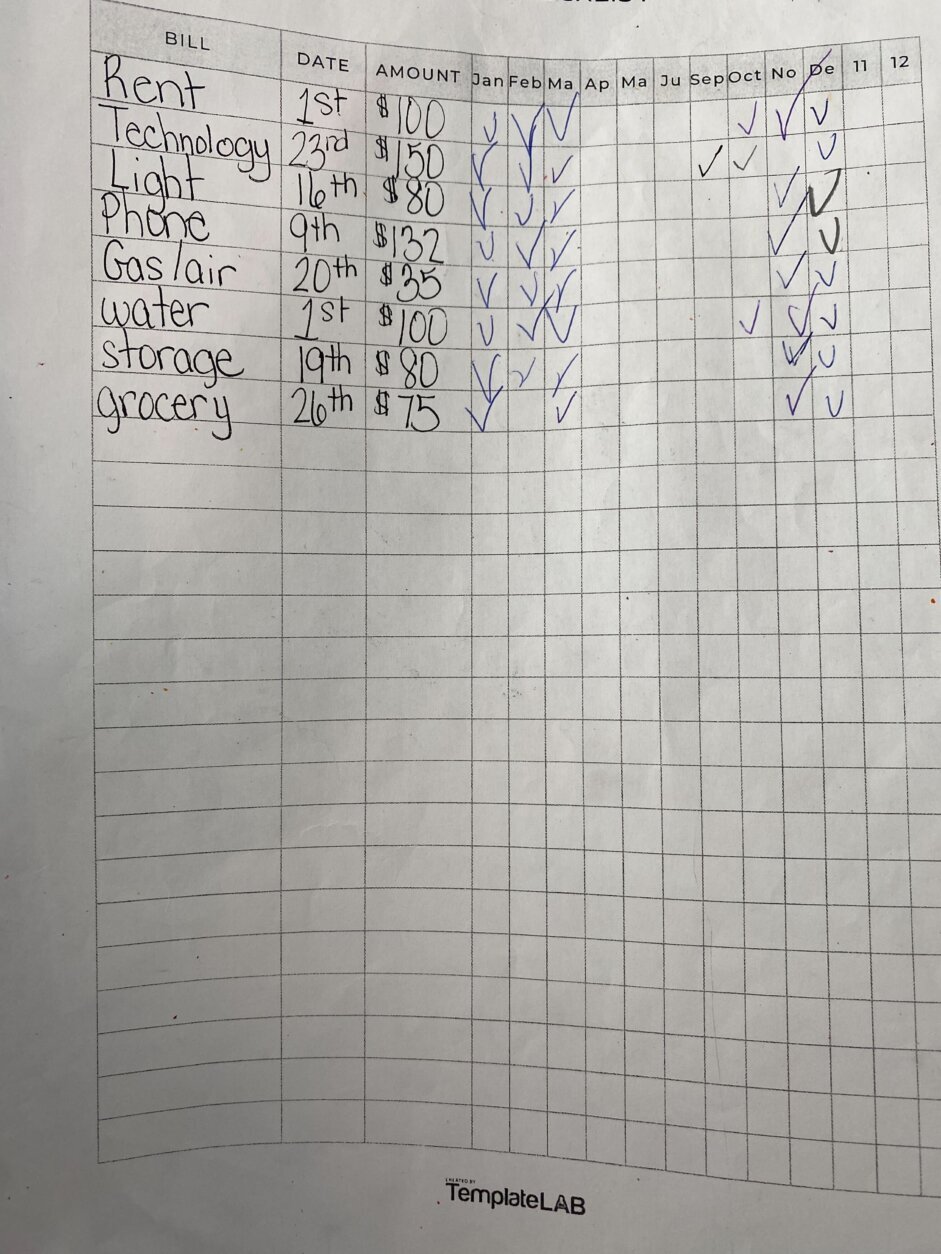 BILL DATE AMOUNT Jan Feb Ma Ap Ma Ju Sep Oct No De 11 12
Rent 1st $100 ✓ ✓ ✓ ✓ ✓ ✓
Technology 23rd $150 ✓ ✓ ✓ ✓ ✓ ✓
Light 16th $80 ✓ ✓ ✓ ✓ ✓
Phone 9th $132 ✓ ✓ ✓ ✓ ✓
Gas/air 20th $35 ✓ ✓ ✓ ✓ ✓
water 1st $100 ✓ ✓ ✓ ✓ ✓ ✓
storage 19th $80 ✓ ✓ ✓ ✓ ✓
grocery 26th $75 ✓ ✓ ✓ ✓
CREATED BY
TemplateLAB